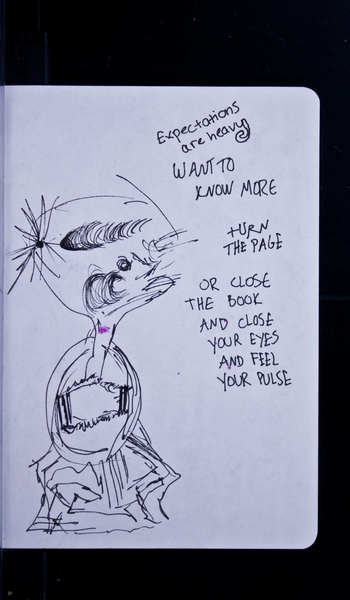 Expectations
are heavy
WANT TO
KNOW MORE
TURN
THE PAGE
OR CLOSE
THE BOOK
AND CLOSE
YOUR EYES
AND FEEL
YOUR PULSE